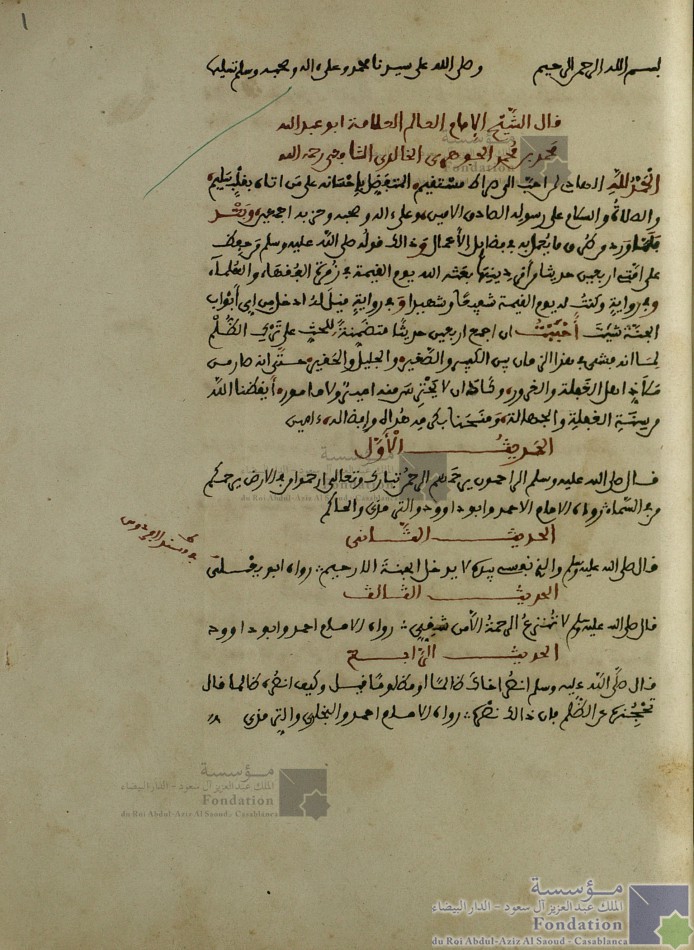 1
بسم الله الرحمن الرحيم وصلى الله على سيدنا محمد وعلى اله وصحبه وسلم تسليما
قال الشيخ الإمام العالم العلامة ابو عبد الله
محمد بن محمد الجوهري الخالدي الشافعي رحمه الله
الحمد لله الهادي من احب الى صراط مستقيم المتفضل بإحسانه على من اتاه بقلب سليم
والصلاة والسلام على رسوله الصادق الامين وعلى اله وصحبه وحزبه اجمعين وبعد
فلما ورد من طرق ما يعمل به في فضايل الأعمال وذالك قوله صلى الله عليه وسلم من حفظ
على امتي اربعين حديثا من أمر دينها بعثه الله يوم القيمة في زمرة الفقهاء والعلماء
وفي رواية وكنت له يوم القيمة شفيعا وشهيدا وفي رواية فيل له ادخل من اي أبواب
الجنة شئت أحببت ان اجمع اربعين حديثا متضمنة للحث على ترك الظلم
لما انه فشى في هذا الزمان بين الكبير والصغير والجليل والحقير حتى انه صار من
اهل الغفلة والغرور أيقظنا الله
من سنة الغفلة والجهالة ومنحنا بكرمه هداه وإفضاله ءامين
الحديث الأول
قال صلى الله عليه وسلم الراحمون يرحمهم الرحمن تبارك وتعالى ارحموا من في الارض يرحمكم
من في السماء رواه الامام الاحمد وابو داوود والترمذي والحاكم
الحديث الثاني
قال صلى الله عليه وسلم والذي نفسي بيده لا يدخل الجنة الا رحيم رواه ابو يعلى
الحديث الثالث
قال صلى الله عليه وسلم لا تنزع الرحمة الا من شقي رواه الامام احمد وابو داوود
الحديث الرابع
قال صلى الله عليه وسلم انصر اخاك ظالما او مظلوما فيل وكيف انصره ظالما قال
تحجزه عن الظلم فإن ذالك نصره رواه الامام احمد والبخاري والترمذي
مؤسسة
الملك عبد العزيز آل سعود - الدار البيضاء
Fondation
du Roi Abdul-Aziz Al Saoud - Casablanca
مؤسسة
الملك عبد العزيز آل سعود - الدار البيضاء
Fondation
du Roi Abdul-Aziz Al Saoud - Casablanca